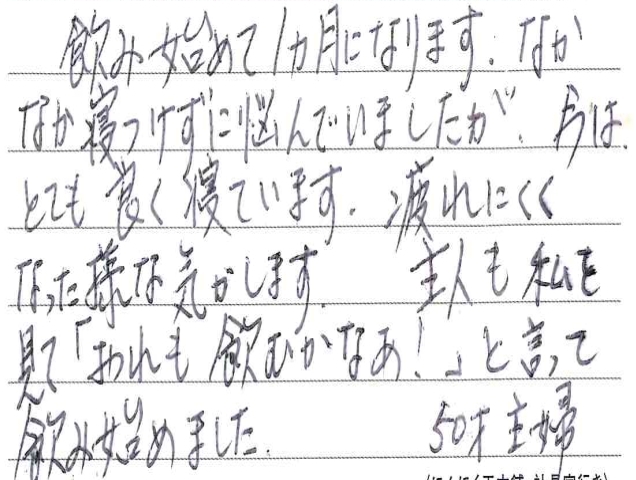 飲み始めて1カ月になります。なか
なか寝つけずに悩んでいましたが、今は、
とても良く寝ています。疲れにくく
なった様な気がします。 主人も私を
見て「おれも飲むかなあ!」と言って
飲み始めました。 50才主婦